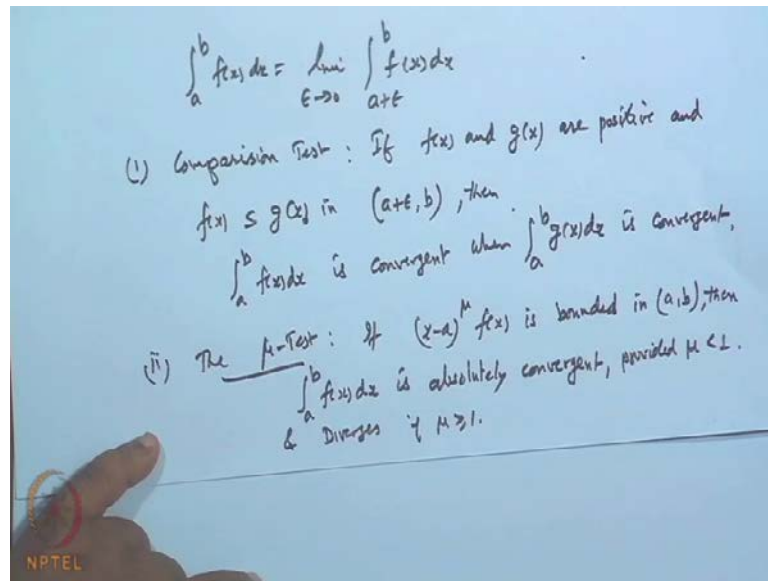 ∫_a^b f(x) dx = lim_{ε→0} ∫_{a+ε}^b f(x) dx
(i) Comparision Test : If f(x) and g(x) are positive and
f(x) ≤ g(x) in (a+ε, b), then
∫_a^b f(x) dx is convergent when ∫_a^b g(x) dx is convergent,
(ii) The μ-Test : If (x-a)^μ f(x) is bounded in (a,b), then
∫_a^b f(x) dx is absolutely convergent, provided μ < 1.
& Diverges if μ ≥ 1.
NPTEL